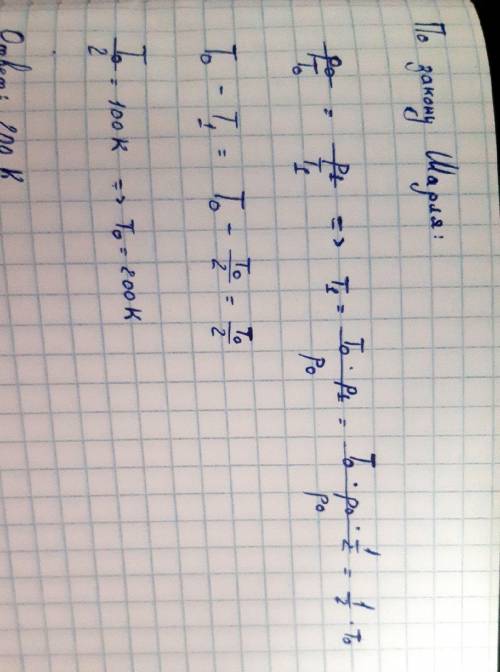 По закону Шарля:
p₀/T₀ = p₁/T₁ => T₁ = T₀ · p₁/p₀ = T₀ · p₀ · 1/2/p₀ = 1/2 · T₀
T₀ - T₁ = T₀ - T₀/2 = T₀/2
T₀/2 = 100K => T₀ = 200K
Ответ: 200 K